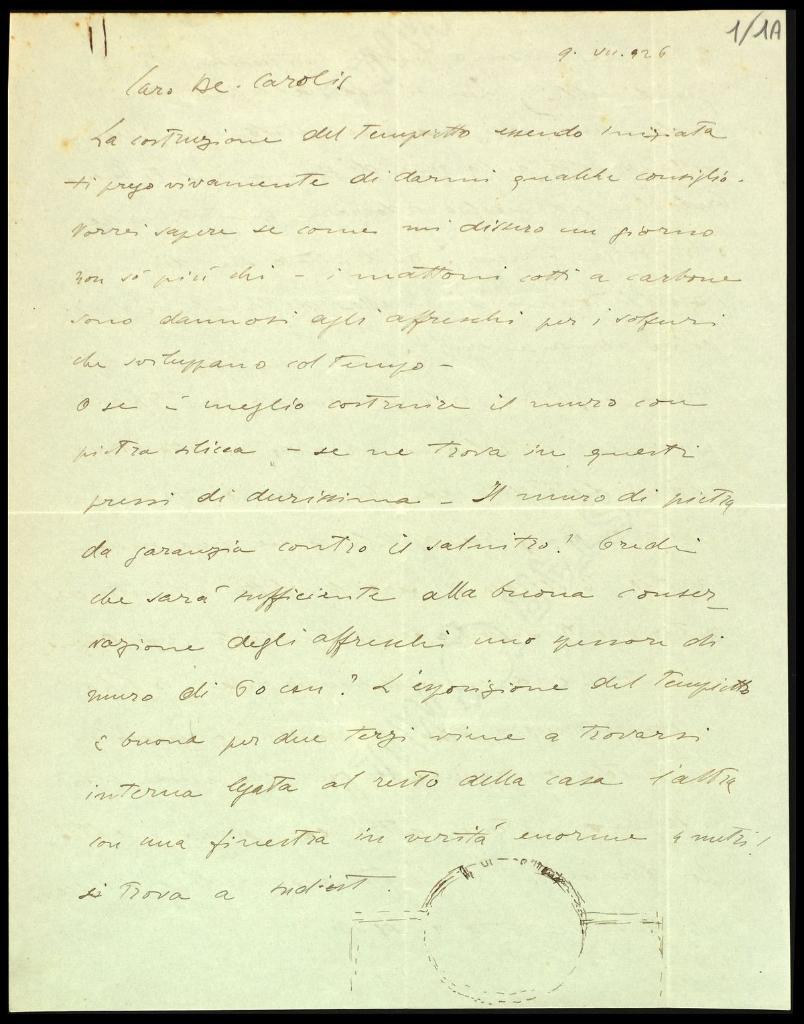 1/1A
9. VII. 926
Caro De. Carolis
La costruzione del Tempietto essendo iniziata
ti prego vivamente di darmi qualche consiglio.
Vorrei sapere se come mi dissero un giorno
non só più chi - i mattoni cotti a carbone
sono dannosi agli affreschi per i solfuri
che sviluppano col tempo -
O se è meglio costruire il muro con
pietra silicea - se ne trova in questi
pressi di durissima - Il muro di pietra
da garanzia contro il salnitro? Credi
che sará sufficiente alla buona conser_
vazione degli affreschi uno spessore di
muro di 60 cm? L'esposizione del Tempietto
è buona per due terzi viene a trovarsi
interna legata al resto della casa l'altra
con una finestra in veritá enorme 4 metri!
si trova a sudest.